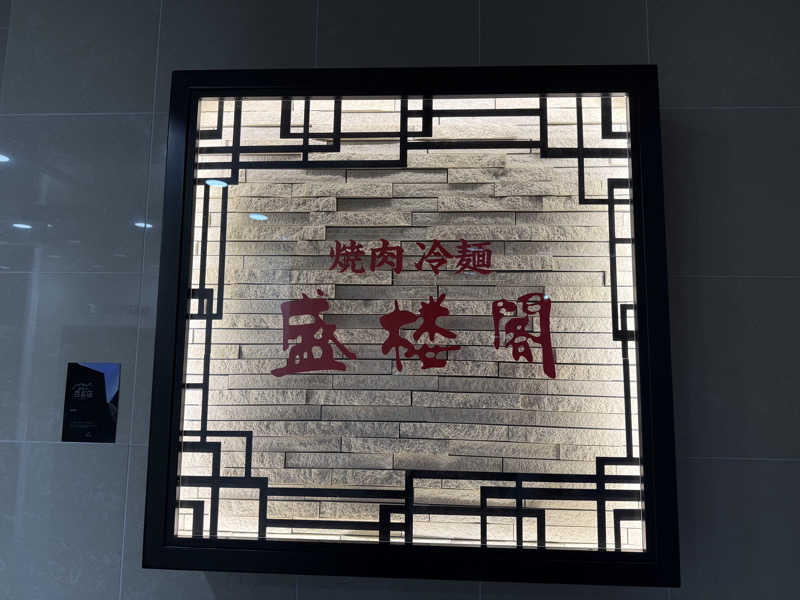 焼肉 冷麺
盛楼閣